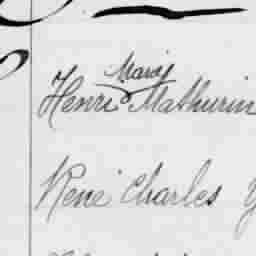 Marie
Henri Mathurin
René Charles